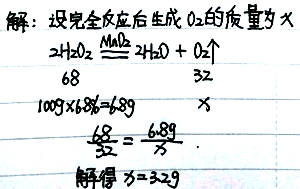 解：设完全反应后生成O₂的质量为x
2H₂O₂ =MnO₂= 2H₂O + O₂↑
68 32
100g×6.8%=6.8g x
68/32 = 6.8g/x .
解得 x=3.2g